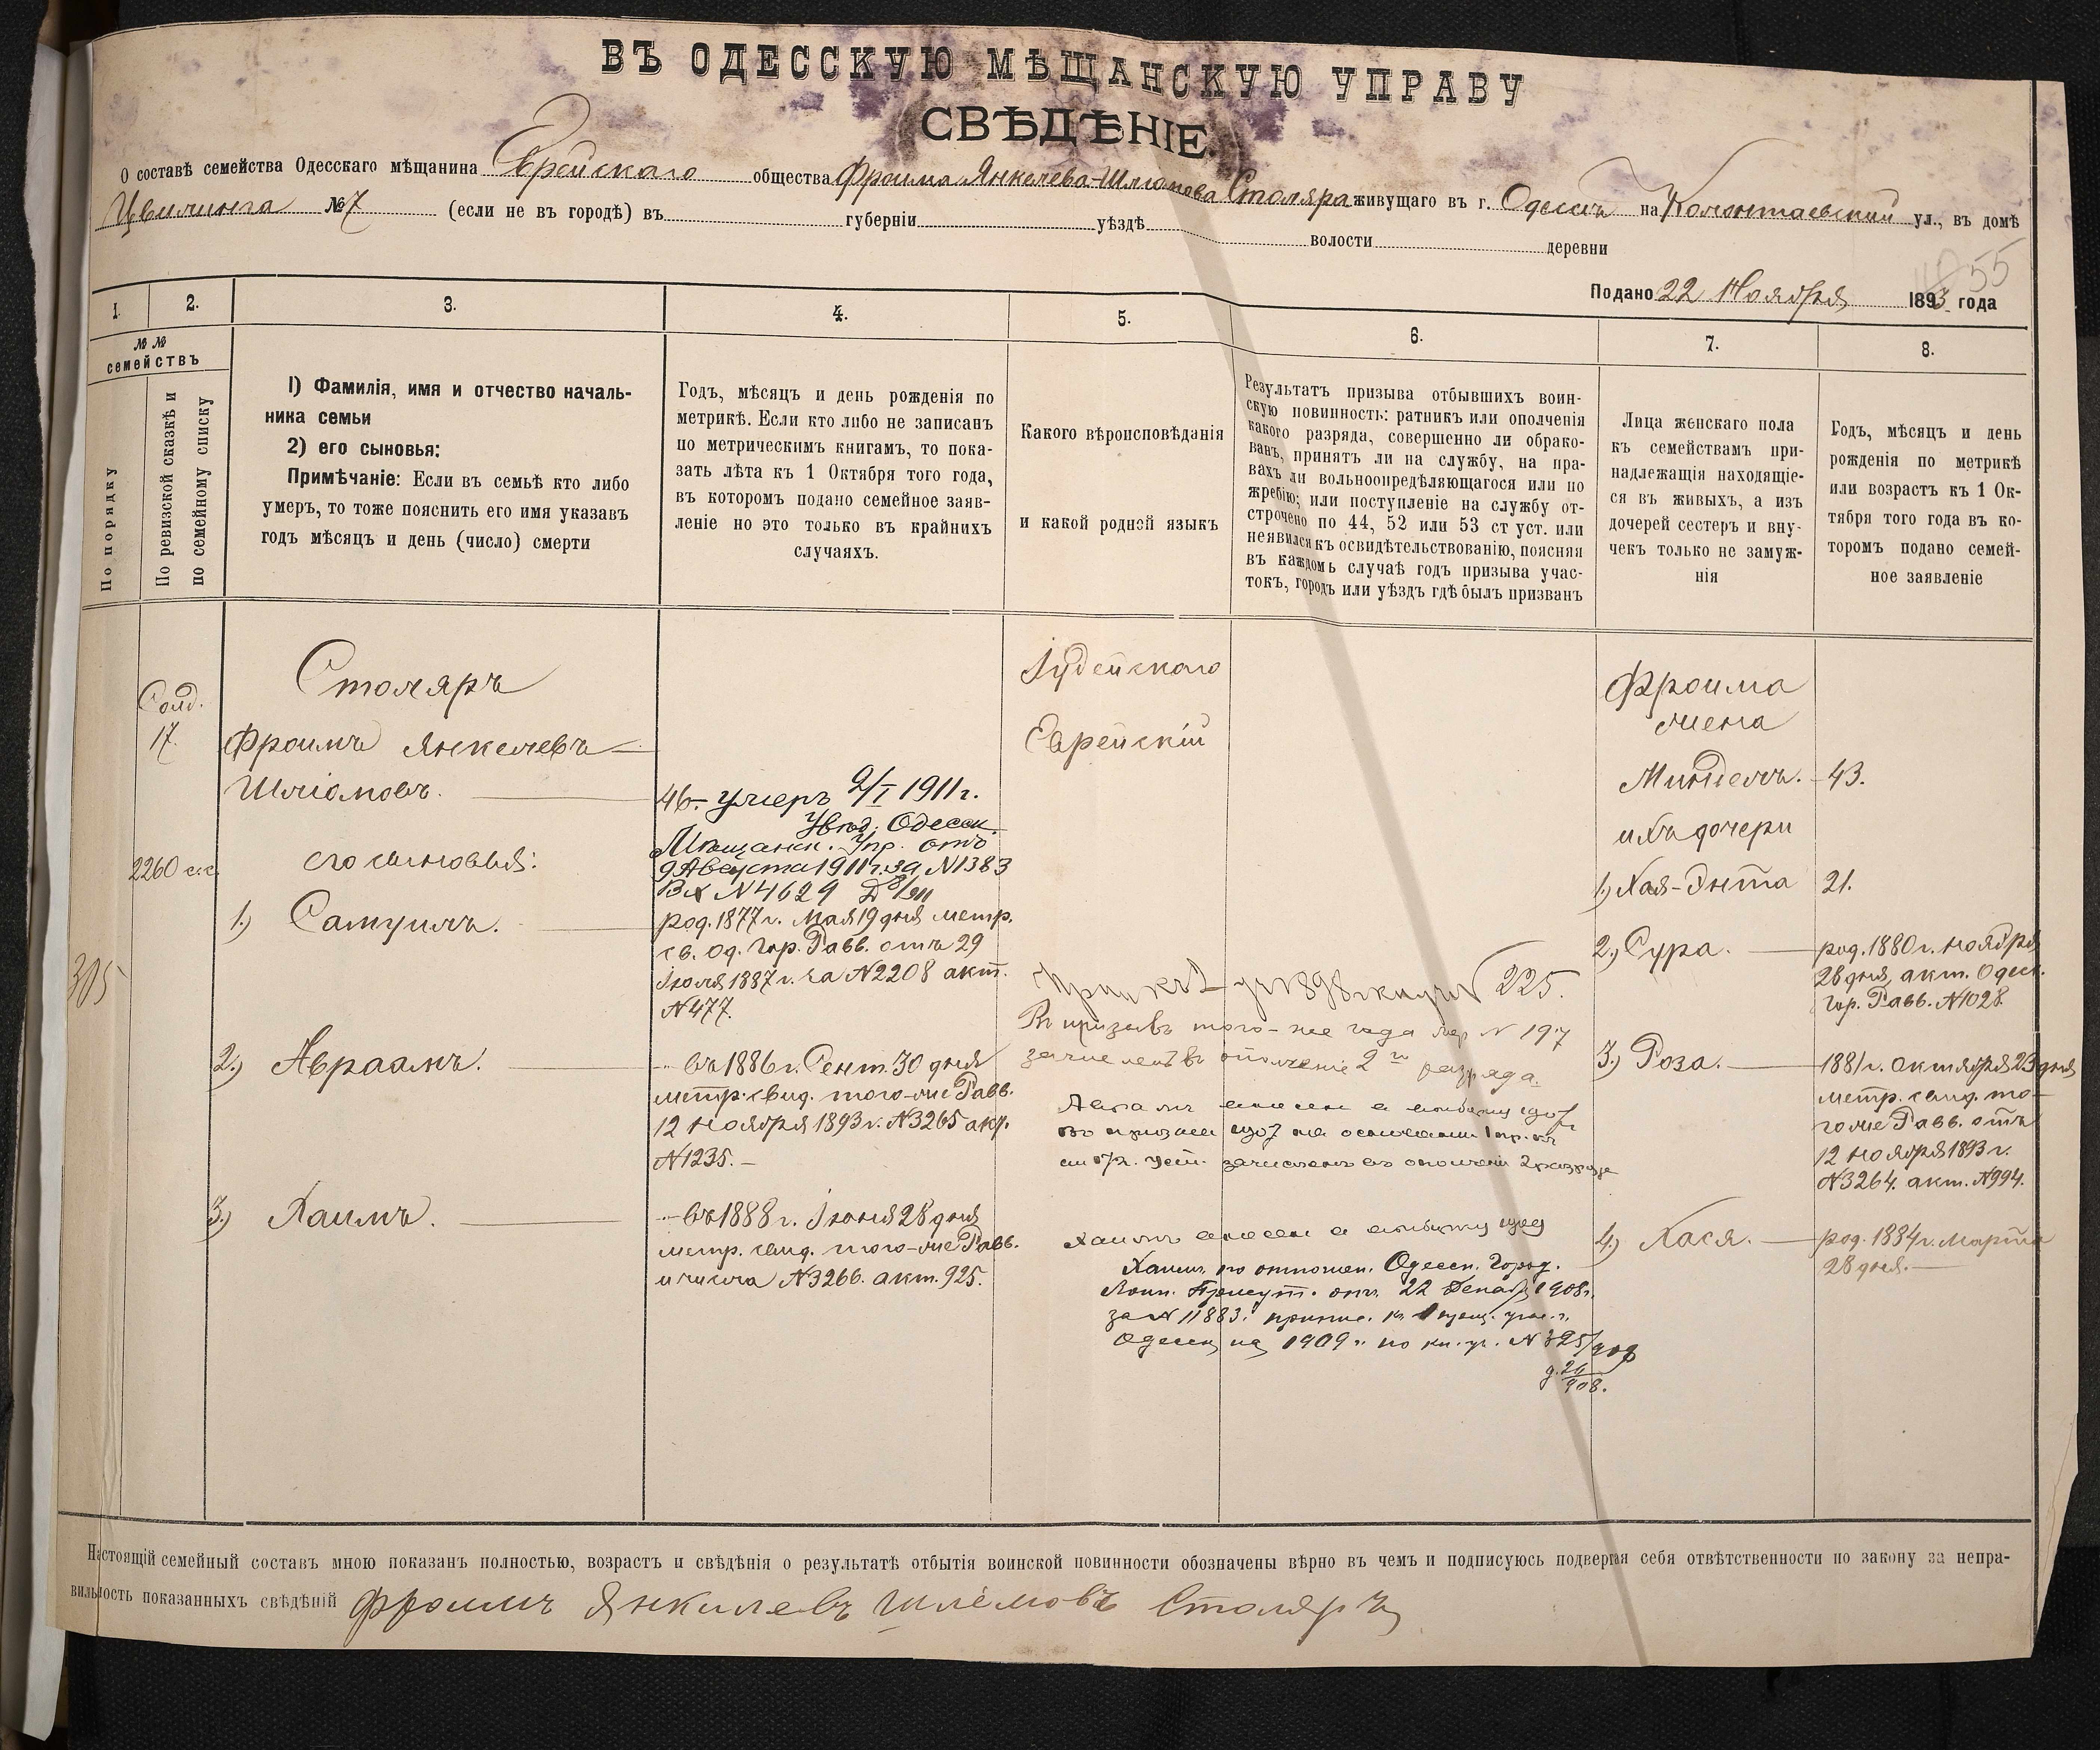 ВЪ ОДЕССКУЮ МѢЩАНСКУЮ УПРАВУ
СВѢДѢНІЕ.
О составѣ семейства Одесскаго мѣщанина Еврейскаго общества Фроима Янкелева-Шліомова Столяра живущаго въ г. Одессѣ на Колонтаевской ул., въ домѣ
Цвилинга №7 (если не въ городѣ) въ губерніи уѣздѣ волости деревни
55
Подано 22 Ноября 1893 года
1. 2. 3. 4. 5. 6. 7. 8.
№№
семействъ
По порядку
По ревизской сказкѣ и
по семейному списку
1) Фамилія, имя и отчество началь-
ника семьи
2) его сыновья:
Примѣчаніе: Если въ семьѣ кто либо
умеръ, то тоже пояснить его имя указавъ
годъ мѣсяцъ и день (число) смерти
Годъ, мѣсяцъ и день рожденія по
метрикѣ. Если кто либо не записанъ
по метрическимъ книгамъ, то пока-
зать лѣта къ 1 Октября того года,
въ которомъ подано семейное заяв-
леніе но это только въ крайнихъ
случаяхъ.
Какого вѣроисповѣданія
и какой родной языкъ
Результатъ призыва отбывшихъ воин-
скую повинность: ратникъ или ополченія
какого разряда, совершенно ли обрако-
ванъ, принятъ ли на службу, на пра-
вахъ ли вольноопредѣляющагося или по
жребію; или поступленіе на службу от-
строчено по 44, 52 или 53 ст уст. или
неявился къ освидѣтельствованію, поясняя
въ каждомъ случаѣ годъ призыва учас-
токъ, городъ или уѣздъ гдѣ былъ призванъ
Лица женскаго пола
къ семействамъ при-
надлежащія находящіе-
ся въ живыхъ, а изъ
дочерей сестеръ и вну-
чекъ только не замуж-
нія
Годъ, мѣсяцъ и день
рожденія по метрикѣ
или возрастъ къ 1 Ок-
тября того года въ ко-
торомъ подано семей-
ное заявленіе
Солд.
17.
2260 с.с.
305
Столяръ
Фроимъ Янкелевъ-
Шліомовъ.
46. умеръ 2/I 1911 г.
Увѣд. Одесск.
Мѣщанск. Упр. отъ
9 Августа 1911 г. за №1383
Вх №4629
его сыновья:
1.) Самуилъ.
род. 1877 г. Мая 19 дня метр.
св. Од. Гор. Равв. отъ 29
Іюля 1887 г. за №2208 акт.
№477.
2.) Авраамъ.
— въ 1886 г. Сент. 30 дня
метр. свид. того-же Равв.
12 Ноября 1893 г. №3265 акт.
№1235.—
3.) Хаимъ.
— въ 1888 г. Іюня 28 дня
метр. свид. того-же Равв.
и числа №3266. акт. 925.
Іудейскаго
Еврейскій
1898 № 225.
Въ призывъ того-же года жер № 197
зачисленъ въ ополченіе 2го разряда.
1907
въ призыв 1907 на основании
зачисленъ въ ополчені 2 разряда
Хаимъ внесен в
Хаимъ по отношен. Одесск. Город.
Воин. Присут. отъ 22 Декаб. 1908 г.
за № 11883. припис. к. 1 приз. учас. г.
Одессы на 1909 г. по кн. уч. № 325/908
Фроима
жена
Миндель. 43.
ихъ дочери
1.) Хая-Энта 21.
2.) Сура.
род. 1880 г. ноября
28 дня, акт. Одесс.
Гор. Равв. №1028.
3.) Роза.
1881 г. октября 23 дня
метр. свид. то-
го же Равв. отъ
12 ноября 1893 г.
№3264. акт. №994.
4.) Хася.
род. 1884 г. Марта
28 дня.
Настоящій семейный составъ мною показанъ полностью, возрастъ и свѣдѣнія о результатѣ отбытія воинской повинности обозначены вѣрно въ чемъ и подписуюсь подвергая себя отвѣтственности по закону за непра-
вильность показанныхъ свѣдѣній Фроимъ Янкилевъ Шлемовъ Столяръ